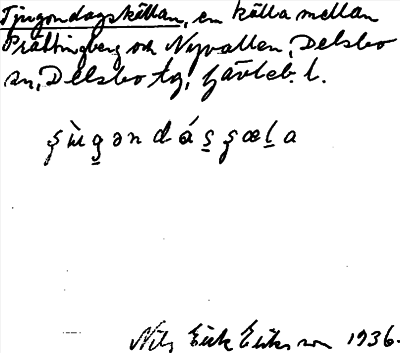 Tjugondagskällan, en källa mellan
Prästingberg och Nyvallen, Delsbo
sn, Delsbo tg, Gävleb. l.
ʂùg̱ən dás̱ʂæḻa
Nils Erik Eriksson 1936.